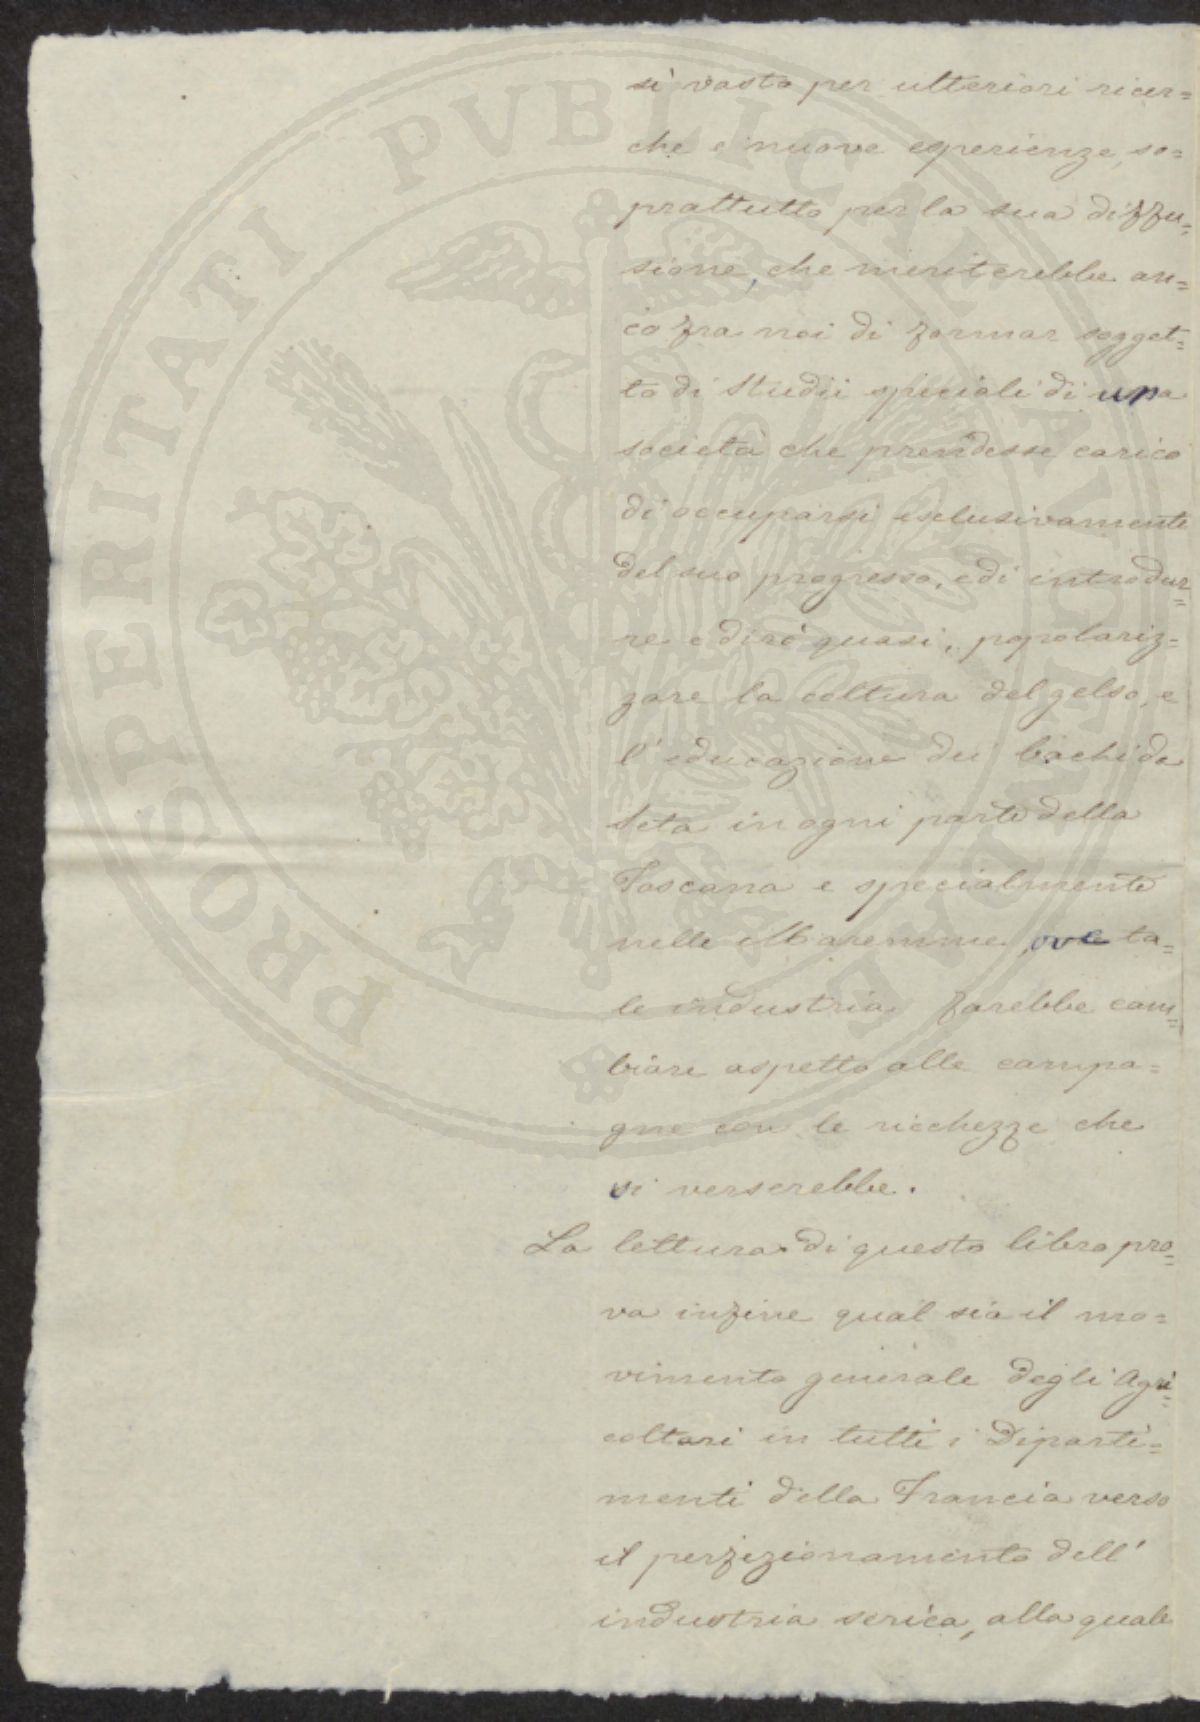 sì vasto per ulteriori ricer=
che e nuove esperienze, so=
prattutto per la sua diffu=
sione, che meriterebbe an=
co fra noi di formar sogget=
to di studii speciali di una
società che prendesse carico
di occuparsi esclusivamente
del suo progresso, e di introdur=
re e dirò quasi, popolariz=
zare la coltura del gelso, e
l'educazione dei bachi da
seta in ogni parte della
Toscana e specialmente
nelle Maremme, ove ta=
le industria farebbe cam=
biare aspetto alle campa=
gne con le ricchezze che
vi verserebbe.
La lettura di questo libro pro=
va infine qual sia il mo=
vimento generale degli Agri=
coltori in tutti i Diparti=
menti della Francia verso
il perfezionamento dell'
industria serica, alla quale
PROSPERITATI PVBLICAE AVGENDAE